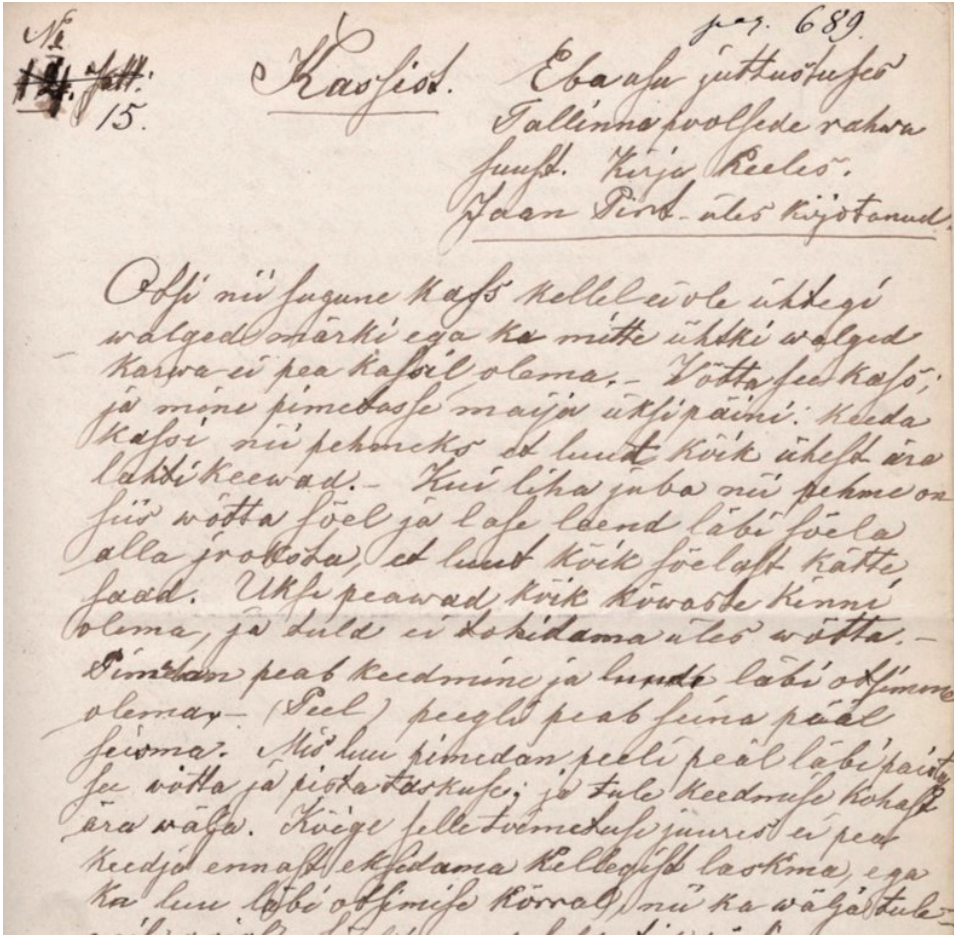 № pag. 689.
Jatt:
15.
Kassist. Ebausu juttustuses
Tallinna poolsede rahwa
suust. Kirja Keeles.
Jaan Pint üles kirjotanud.
Otsi nii sugune kass kellel ei ole ühtegi
walged märki ega ka mitte ühtki walged
karwa ei pea kassil olema. – Wõtta see kass;
ja mine pimedasse maija üksipäini: keeda
kassi nii pehmeks et luud kõik ühest ära
lahti keewad. – Kui liha juba nii pehme on
siis wõtta sõel ja lase leend läbi sõela
alla jooksta, et luud kõik sõelast kätte
saad. Uksi peawad kõik kõwaste kinni
olema, ja tuld ei tohi dama üles wõtta. –
Pimedan peab keedmine ja luude läbi otsimine
olema, – (Peel) peegli peab seina pääl
seisma. Mis luu pimedan peeli peäl läbi paista
see võtta ja pista taskuse; ja tule keedmise kohast
ära wälja. Kõige selle toimetuse juures ei pea
keedja ennast eksidama kellegist laskma, ega
ka luu läbi otsimise kõrral, nii ka wälja tule-